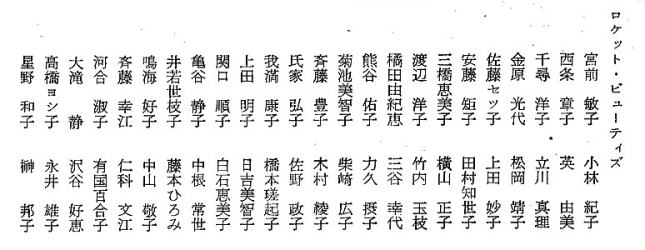 ロケット・ビューティズ
宮前 敏子 小林 紀子
西条 章子 英 由美
千尋 洋子 立川 真理
金原 光代 松岡 靖子
佐藤セツ子 上田 妙子
安藤 矩子 田村知世子
三橋恵美子 横山 正子
渡辺 洋子 竹内 玉枝
橘田由紀恵 三谷 幸代
熊谷 佑子 力久 摂子
菊池美智子 柴崎 広子
斉藤 豊子 木村 綾子
氏家 弘子 佐野 政子
我満 康子 橋本瑳起子
上田 明子 日吉美智子
関口 順子 白石恵美子
亀谷 静子 中根 常世
井若世枝子 藤本ひろみ
鳴海 好子 中山 敬子
斉藤 幸江 仁科 文江
河合 淑子 有国百合子
大滝 静 沢谷 好恵
高橋ヨシ子 永井 雄子
星野 和子 榊 邦子